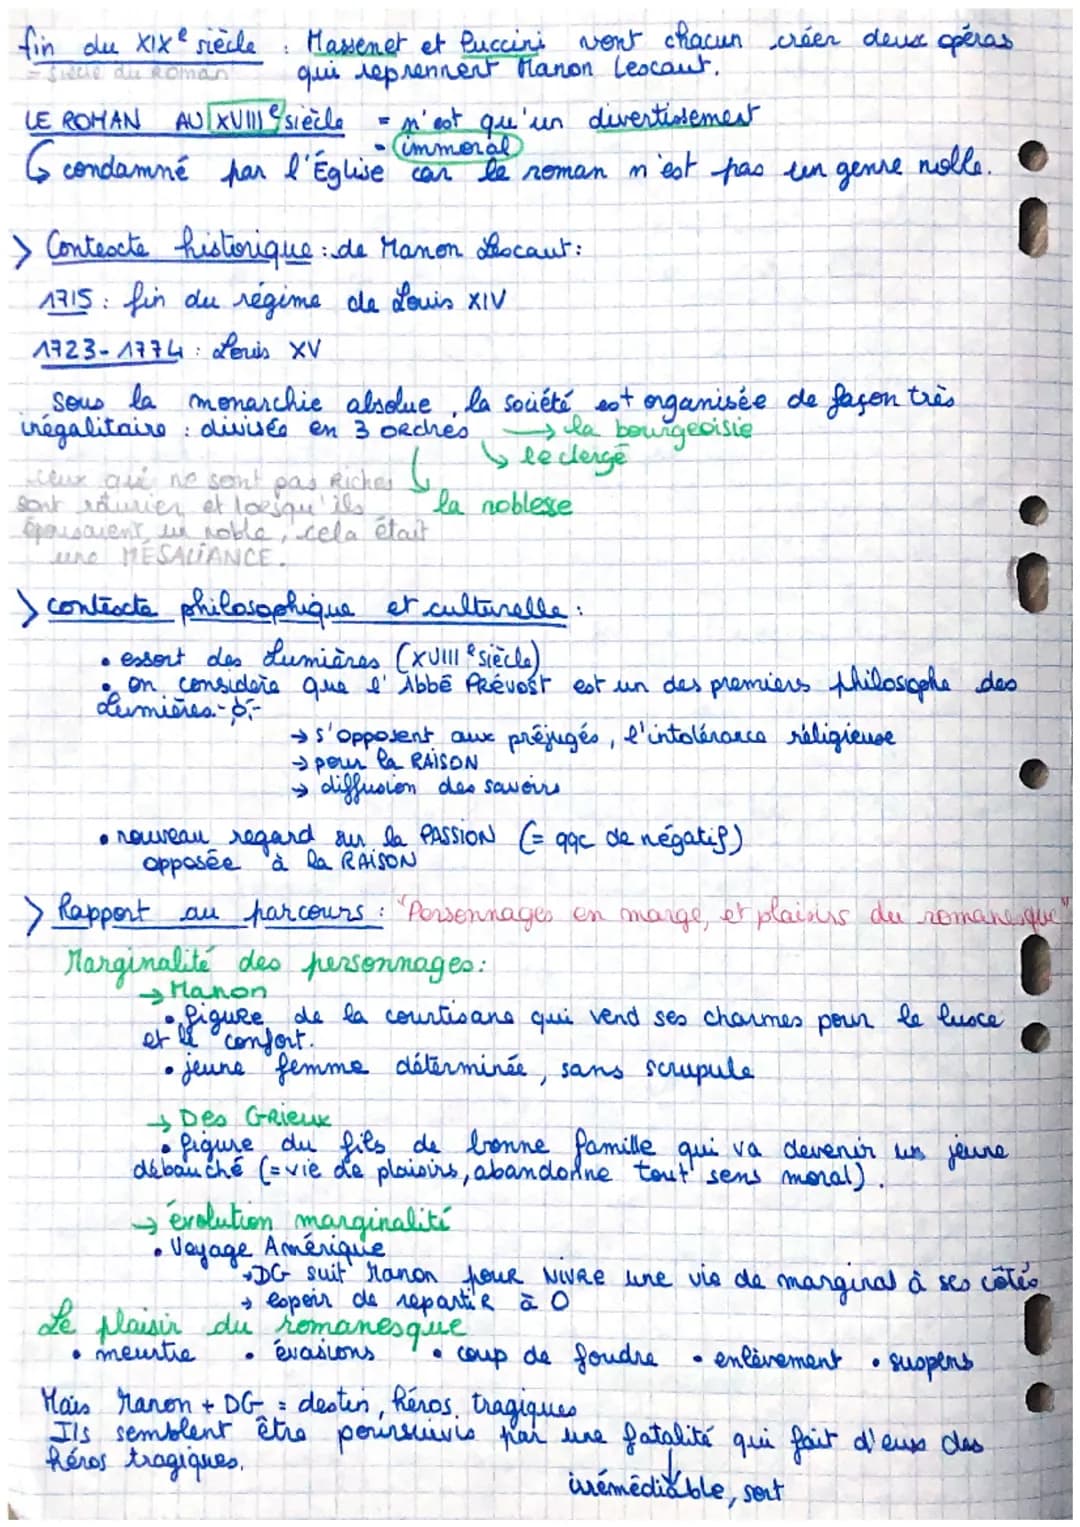 fin du XIXe siècle : Massenet et Puccini vont chacun créer deux opéras
= siècle du roman qui reprennent Manon Lescaut.
LE ROMAN AU XVIIIe siècle = n'est qu'un divertissement
- immoral
↳ condamné par l'Église car le roman n'est pas un genre noble.
> Contexte historique : de Manon Lescaut :
1715 : fin du régime de Louis XIV
1723-1774 : Louis XV
Sous la monarchie absolue, la société est organisée de façon très
inégalitaire : divisée en 3 ordres → la bourgeoisie
↘ le clergé
ceux qui ne sont pas Riches
↓ la noblesse
sont roturier, et lorsqu'ils
épousaient un noble, cela était
une MÉSALIANCE.
> contexte philosophique et culturelle :
• essort des Lumières (XVIIIe siècle)
• on considère que l'Abbé Prévost est un des premiers philosophe des
Lumières.
→ s'opposent aux préjugés, l'intolérance réligieuse
→ pour la RAISON
→ diffusion des savoirs
• nouveau regard sur la PASSION (= qqc de négatif)
opposée à la RAISON
> Rapport au parcours : "Personnages en marge, et plaisirs du romanesque"
Marginalité des personnages :
→ Manon
• figure de la courtisane qui vend ses charmes pour le luxe
et le confort.
• jeune femme déterminée, sans scrupule
→ Des Grieux
• figure du fils de bonne famille qui va devenir un jeune
débauché (= vie de plaisirs, abandonne tout sens moral).
→ évolution marginalité
• Voyage Amérique
→ DG suit Manon pour VIVRE une vie de marginal à ses côtés
→ espoir de repartir à 0
Le plaisir du romanesque
• meurtre • évasions • coup de foudre • enlèvement • suspens
Mais Manon + DG = destin, héros tragiques
Ils semblent être poursuivis par une fatalité qui fait d'eux des
héros tragiques.
↓
irrémédiable, sort